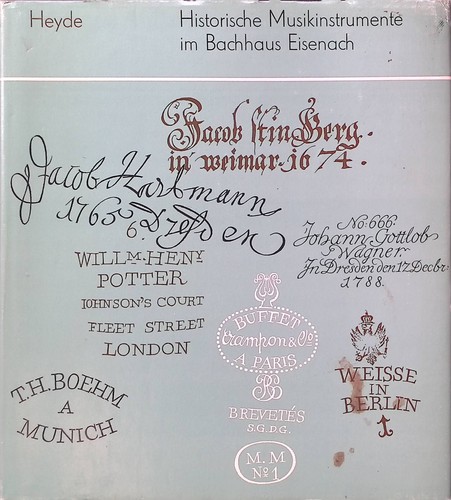 Heyde
Historische Musikinstrumente
im Bachhaus Eisenach
Jacob stin Berg.
in weimar. 1674.
Jacob Hartmann
1765 Dresden
6.
No: 666.
Johann Gottlob
Wagner
In Dresden den 17 Decbr
1788.
WILLM. HENY
POTTER
JOHNSON'S COURT
FLEET STREET
LONDON
BUFFET
Crampon & Cie
A PARIS
BREVETÉS
S.G.D.G.
M.M
No 1
WEISSE
IN
BERLIN
T.H. BOEHM
A
MUNICH